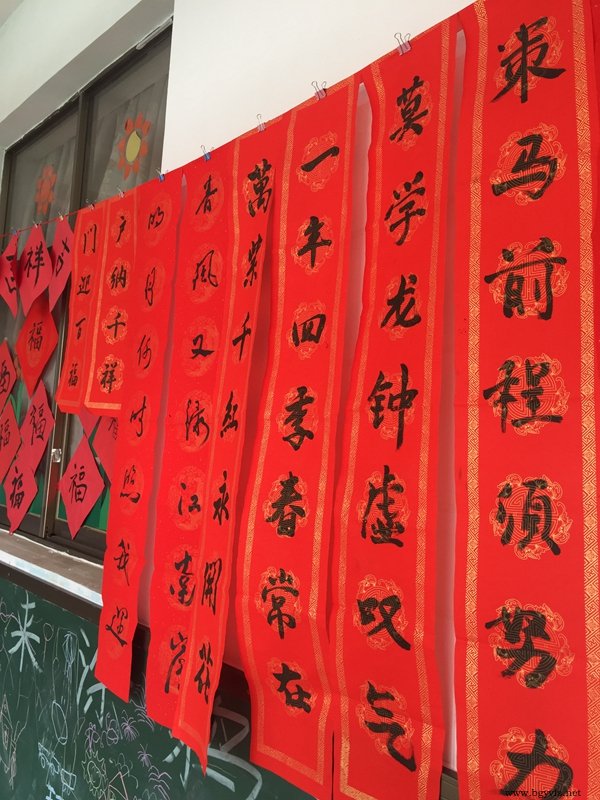 策马前程須努力
莫学龙钟虚叹气
一年四季春常在
萬紫千红永開花
春風又绿江南岸
明月何时照我还
户纳千祥
门迎百福
祥
福
福
福
福
福
来